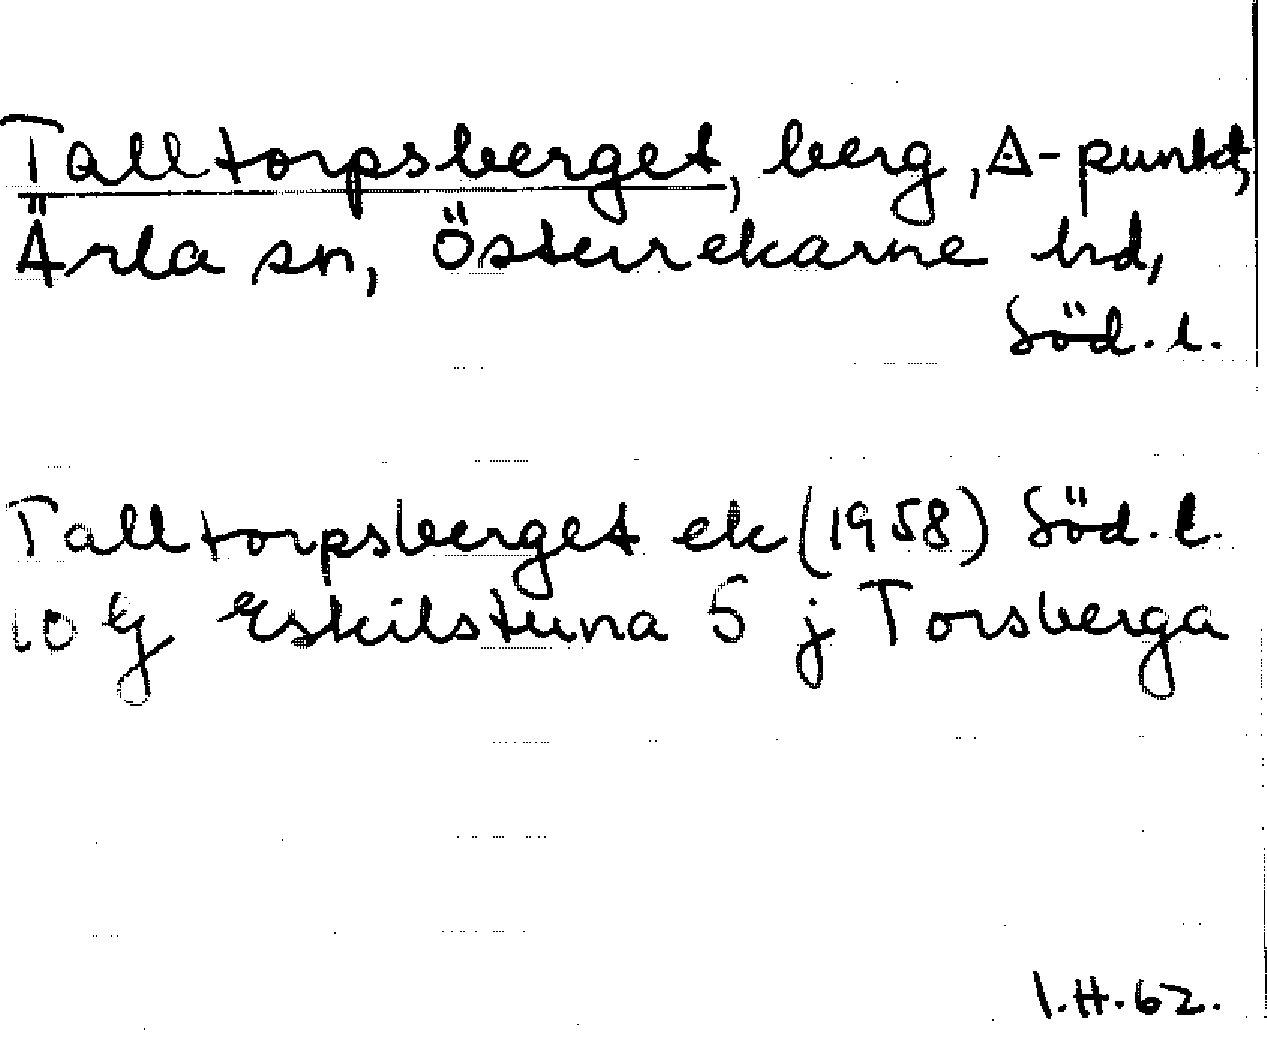 Talltorpsberget, berg, △-punkt,
Ärla sn, Österrekarne hd,
Söd. l.
Talltorpsberget ek (1958) Söd. l.
10 g Eskilstuna 5 j Torsberga
I.H. 62.